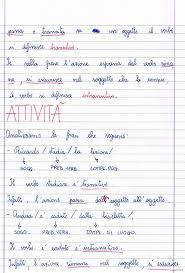 passa o transita su un oggetto il verbo
si definisce transitivo.
Se nella frase l'azione espressa dal verbo rima
ne si esaurisce nel soggetto che la compie, il
verbo si definisce intransitivo.
ATTIVITÀ
Analizziamo le frasi che seguono:
- Riccardo / studia / la lezione /
SOGG. PRED. VERB. COMPL. OGG.
Il verbo studiare è transitivo
Infatti l'azione passa dal soggetto all'oggetto.
- Andrea / è caduto / dalla bicicletta /
SOGG. PRED. VERB. COMPL. DI LUOGO
Il verbo è caduto è intransitivo.
Infatti, l'azione rimane nel soggetto si esaurisce